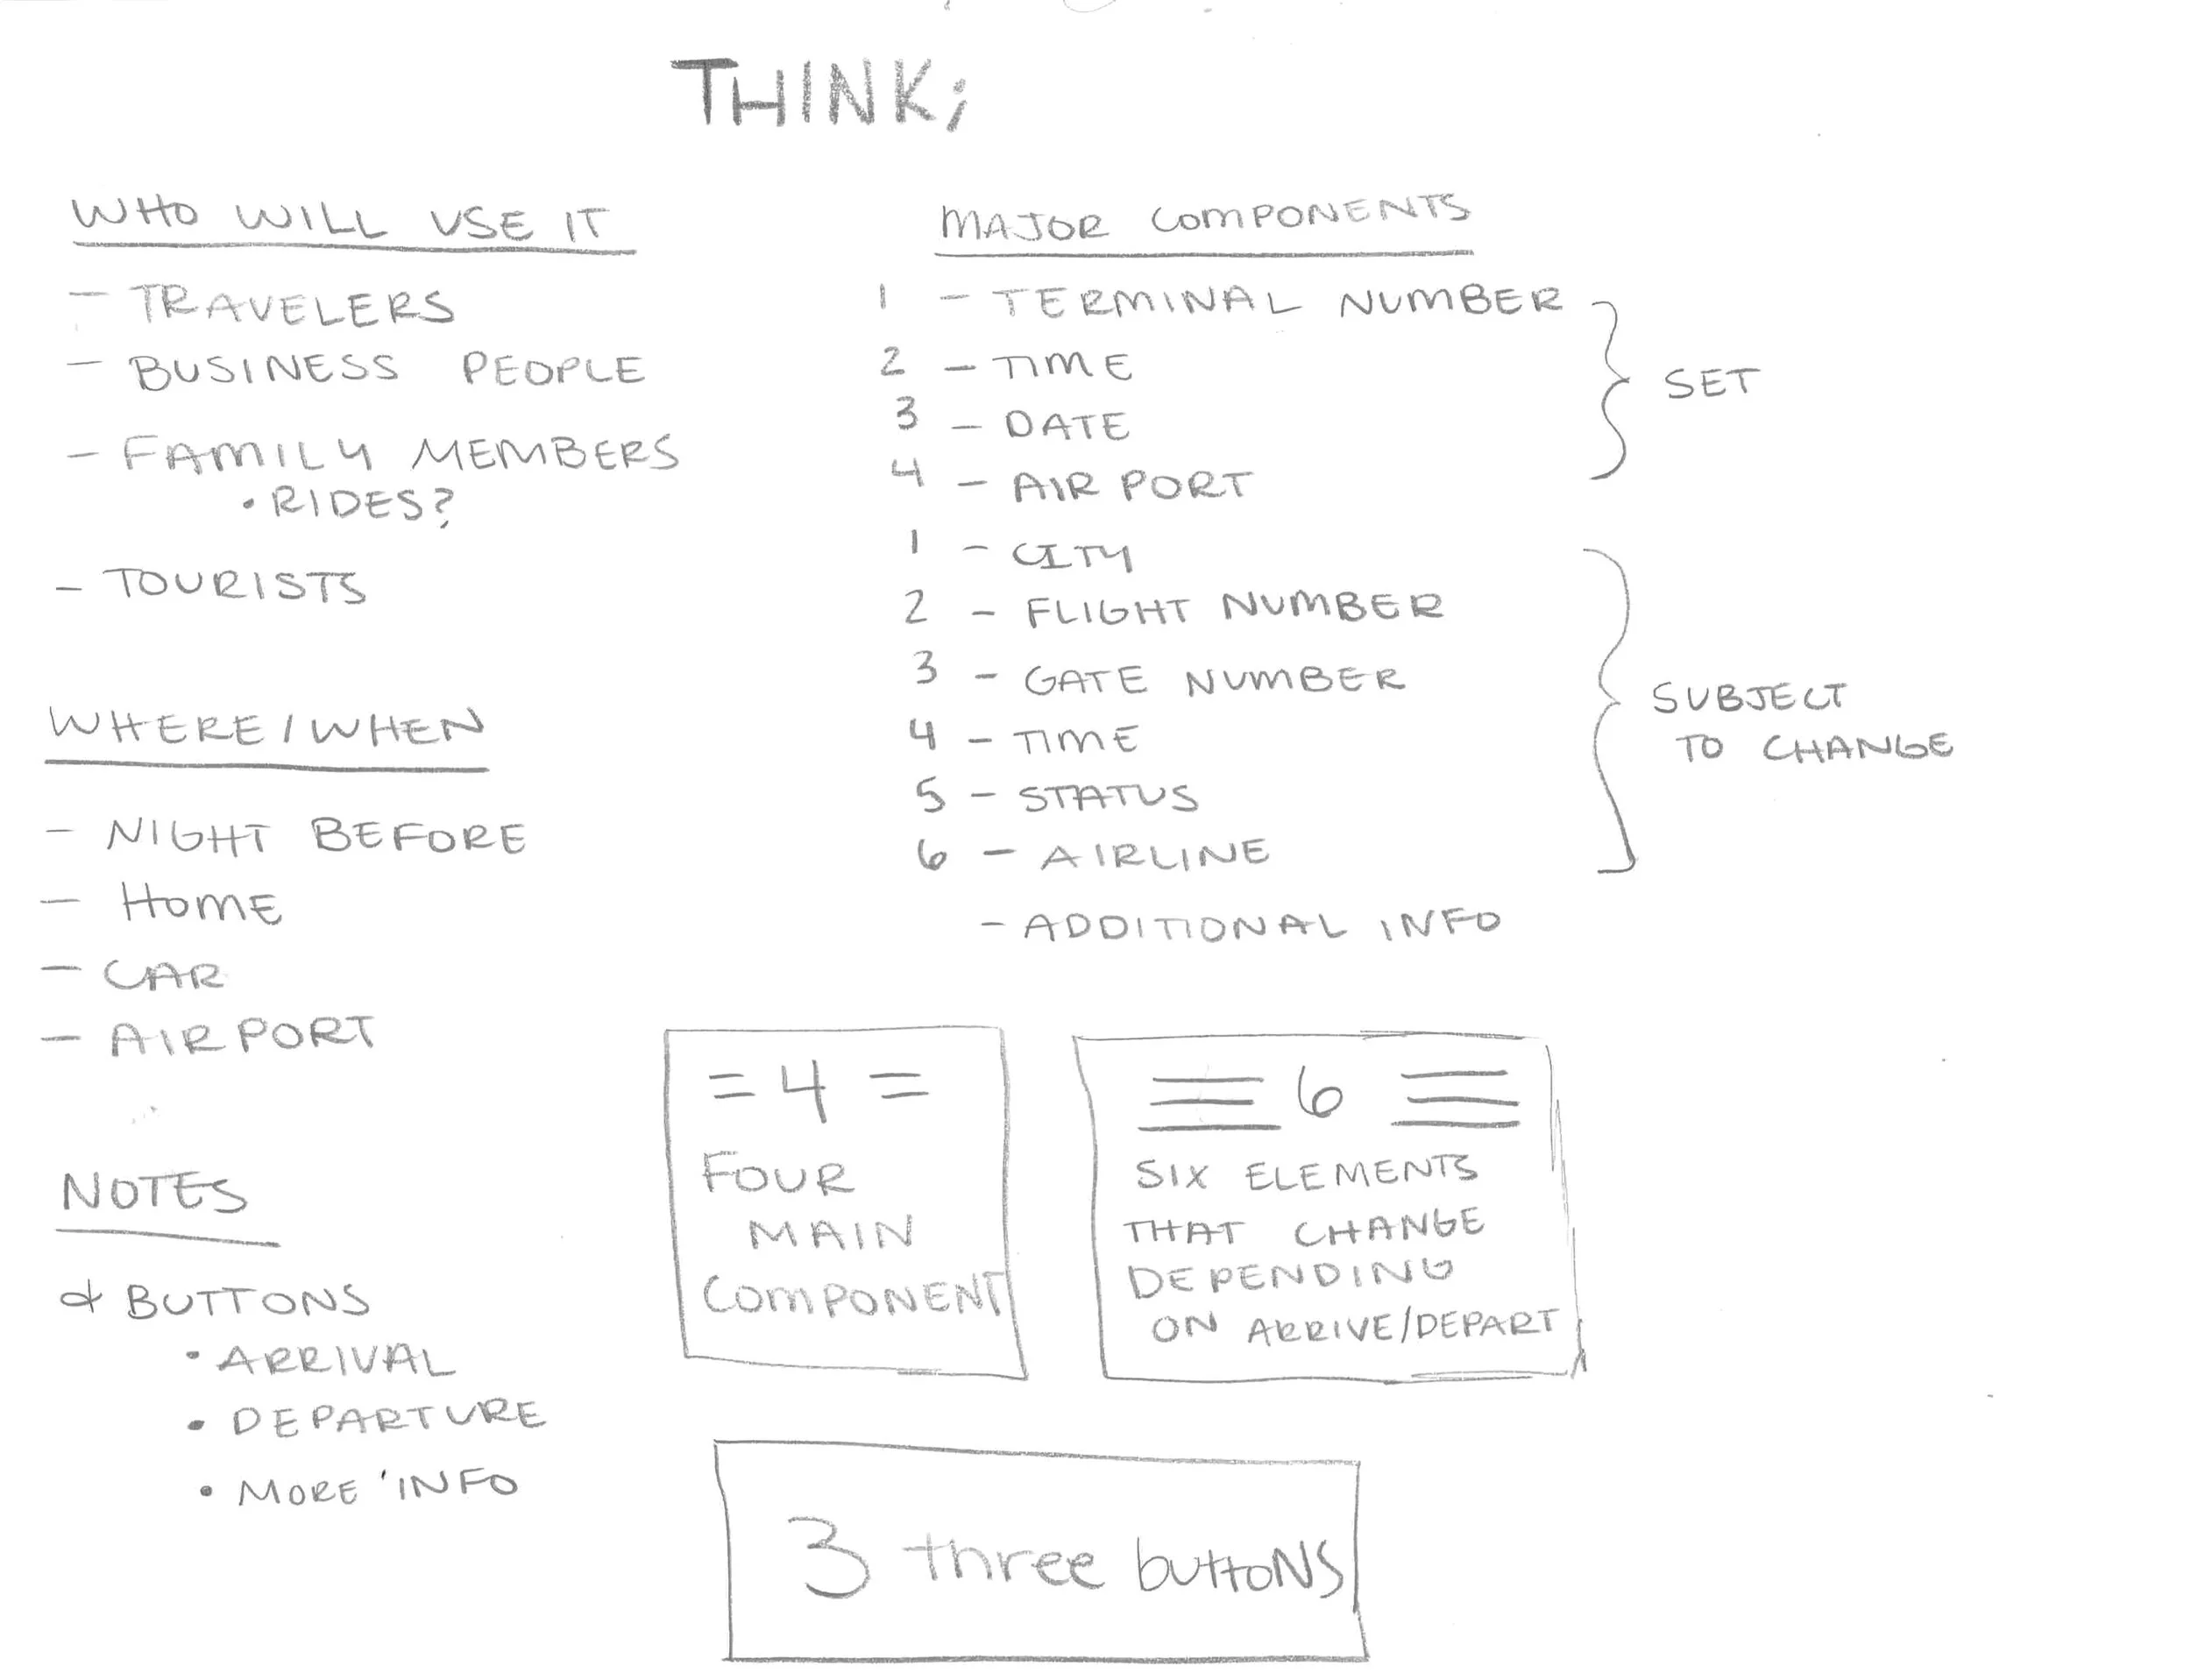 THINK;
WHO WILL USE IT
- TRAVELERS
- BUSINESS PEOPLE
- FAMILY MEMBERS
• RIDES?
- TOURISTS
WHERE/WHEN
- NIGHT BEFORE
- HOME
- CAR
- AIRPORT
NOTES
BUTTONS
• ARRIVAL
• DEPARTURE
• MORE INFO
MAJOR COMPONENTS
1 - TERMINAL NUMBER
2 - TIME
3 - DATE
4 - AIR PORT
SET
1 - CITY
2 - FLIGHT NUMBER
3 - GATE NUMBER
4 - TIME
5 - STATUS
6 - AIRLINE
SUBJECT
TO CHANGE
- ADDITIONAL INFO
= 4 =
FOUR
MAIN
COMPONENT
6
SIX ELEMENTS
THAT CHANGE
DEPENDING
ON ARRIVE/DEPART
3 three buttons